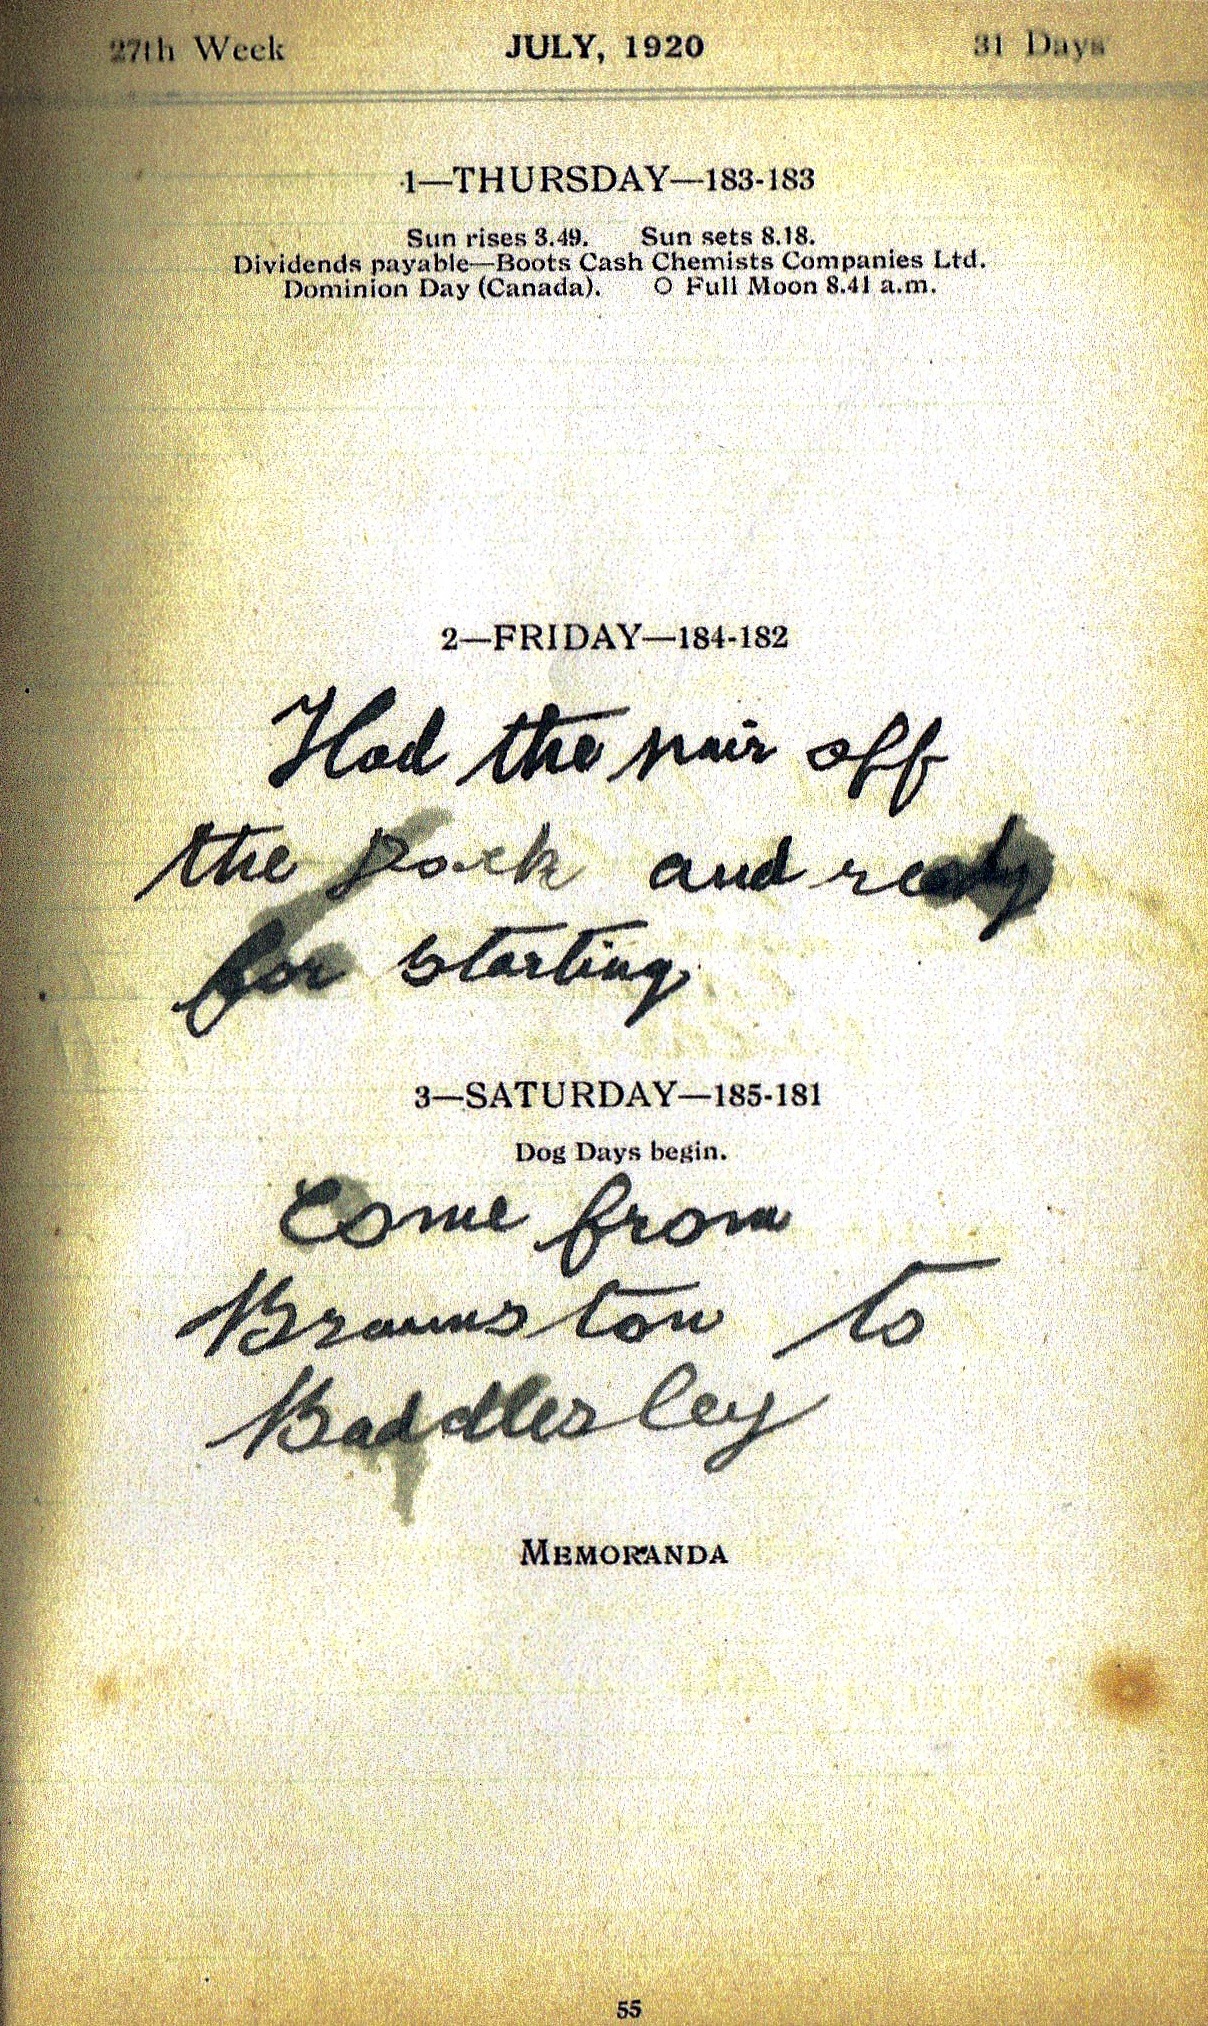 27th Week JULY, 1920 31 Days
1—THURSDAY—183-183
Sun rises 3.49. Sun sets 8.18.
Dividends payable—Boots Cash Chemists Companies Ltd.
Dominion Day (Canada). O Full Moon 8.41 a.m.
2—FRIDAY—184-182
Had the pair off
the Dock and ready
for starting
3—SATURDAY—185-181
Dog Days begin.
Come from
Braunston to
Baddlesley
MEMORANDA
55